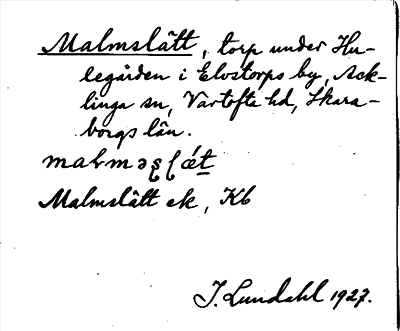 Malmslätt, torp under Hu-
legården i Elvstorps by, Ack-
linga sn, Vartofta hd, Skara-
borgs län.
Malmslätt ek, Kb
I. Lundahl 1927.